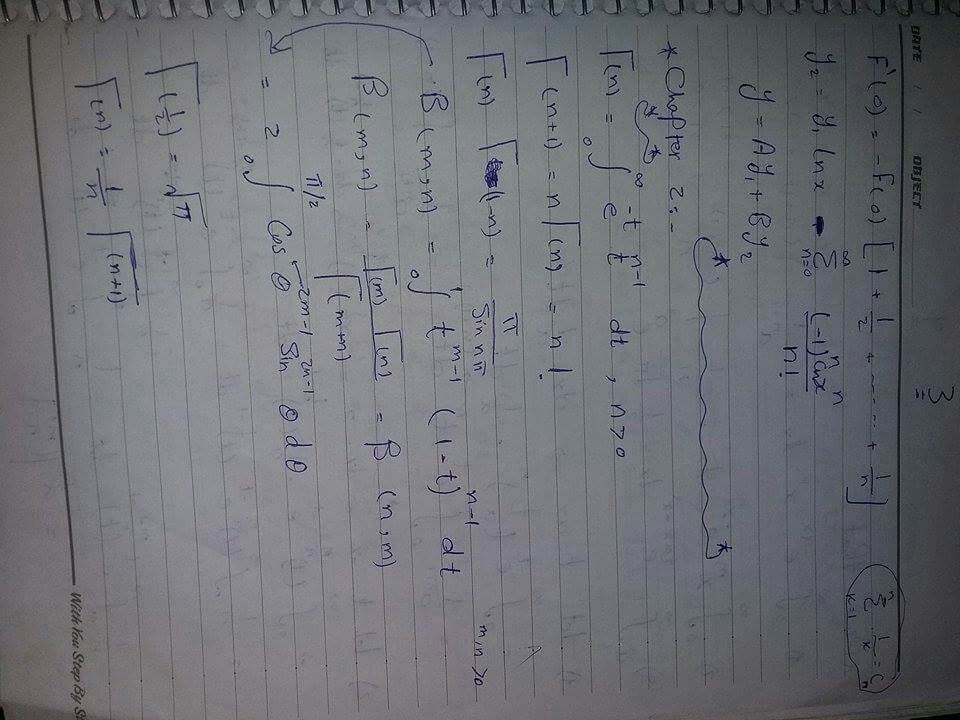 3
DATE / / OBJECT
F'(0) = -F(0) [1 + 1/2 + ...... + 1/n]
n Σ k=1 1/k = Cn
y₂ = y₁ ln x - ∞ Σ n=0 (-1)ⁿ Cn xⁿ / n!
y = Ay₁ + By₂
* Chapter 2:-
Γ(n) = ₀∫^∞ e^-t t^n-1 dt , n > 0
Γ(n+1) = n Γ(n) = n!
Γ(n) Γ(1-n) = π / Sin nπ
β(m,n) = ₀∫¹ t^m-1 (1-t)^n-1 dt m,n > 0
β(m,n) = Γ(m) Γ(n) / Γ(m+n) = β(n,m)
= 2 ₀∫^π/2 Cos^2m-1 θ Sin^2n-1 θ dθ
Γ(1/2) = √π
Γ(n) = 1/n Γ(n+1)
With You Step By